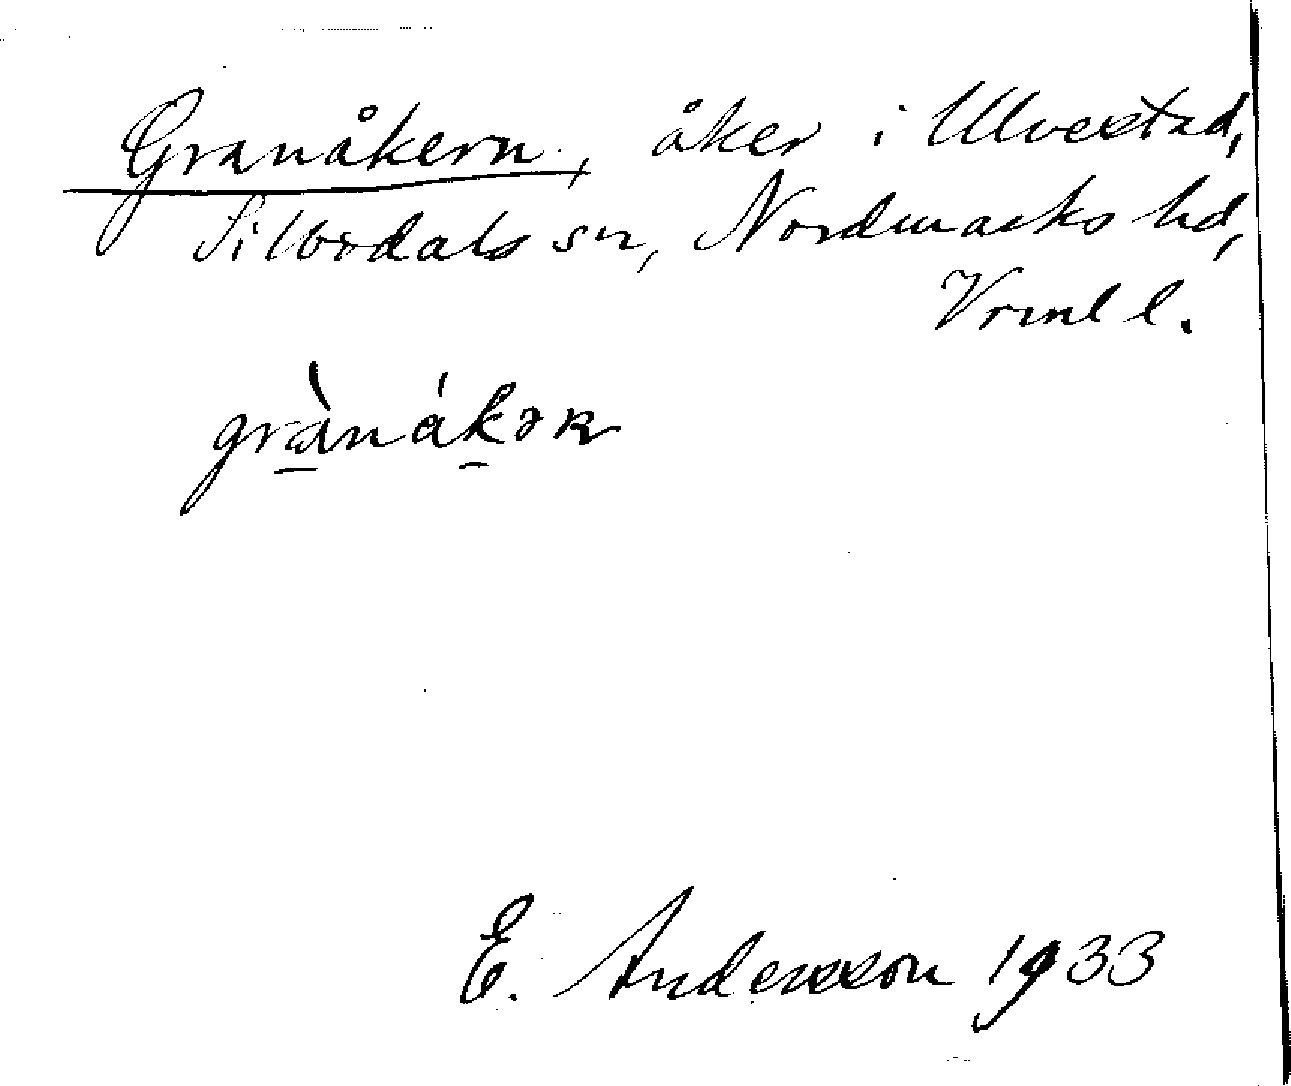 Granåkern, åker i Ulvestad,
Silbodals sn, Nordmarks hd,
Vrml l.
grànákər
E. Andersson 1933